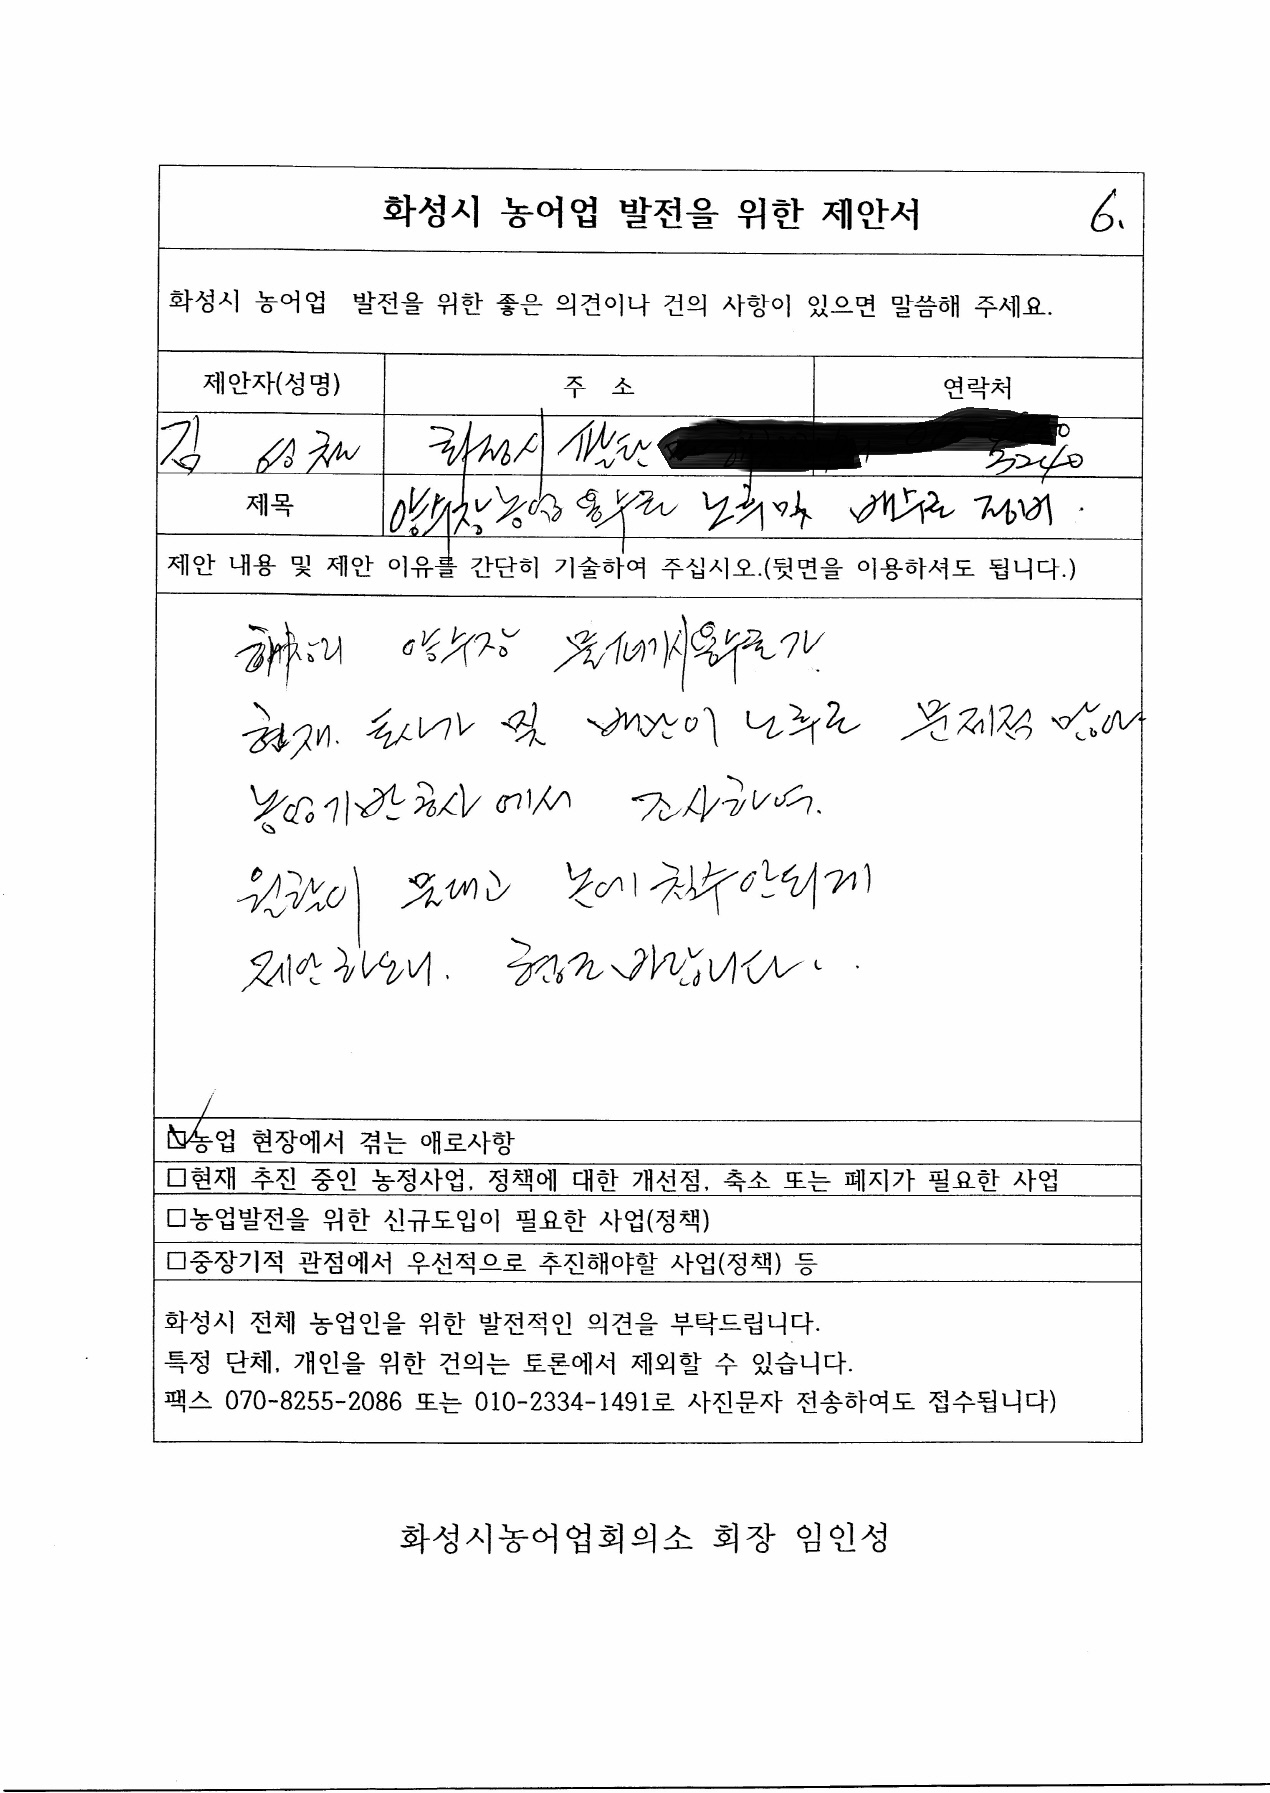 화성시 농어업 발전을 위한 제안서 6.
화성시 농어업 발전을 위한 좋은 의견이나 건의 사항이 있으면 말씀해 주세요.
제안자(성명) 주 소 연락처
김 성채 화성시 팔탄 5240
제목 양수장 농업용수로 노후 및 배수로 정비.
제안 내용 및 제안 이유를 간단히 기술하여 주십시오.(뒷면을 이용하셔도 됩니다.)
해창리 양수장 용수로가
현재. 토사가 및 배관이 노후로 문제점 많아
농업기반공사에서 조사하여.
원활이 물대고 논에 침수안되게
제안하오니. 검토바랍니다..
농업 현장에서 겪는 애로사항
□현재 추진 중인 농정사업, 정책에 대한 개선점, 축소 또는 폐지가 필요한 사업
□농업발전을 위한 신규도입이 필요한 사업(정책)
□중장기적 관점에서 우선적으로 추진해야할 사업(정책) 등
화성시 전체 농업인을 위한 발전적인 의견을 부탁드립니다.
특정 단체, 개인을 위한 건의는 토론에서 제외할 수 있습니다.
팩스 070-8255-2086 또는 010-2334-1491로 사진문자 전송하여도 접수됩니다)
화성시농어업회의소 회장 임인성